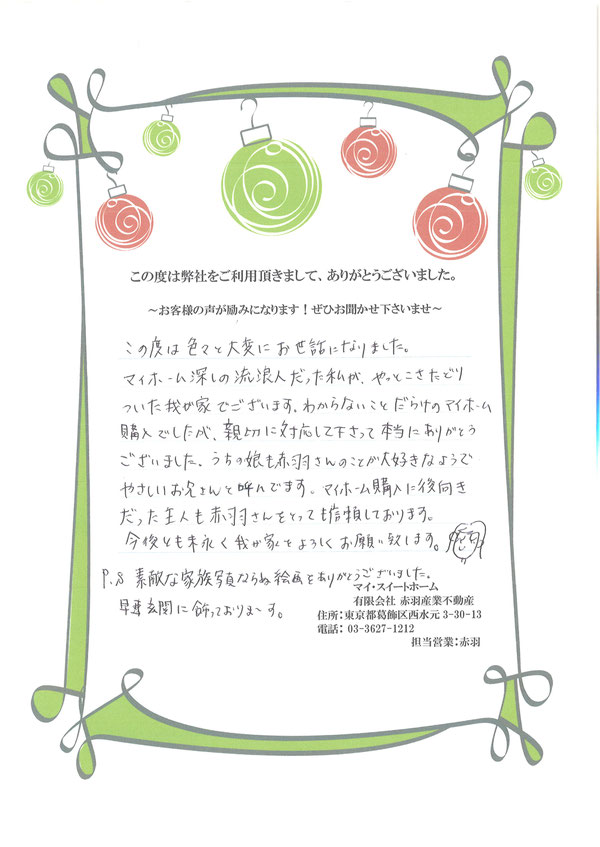 この度は弊社をご利用頂きまして、ありがとうございました。
～お客様の声が励みになります！ぜひお聞かせ下さいませ～
この度は色々と大変にお世話になりました。
マイホーム深しの流浪人だった私が、やっとこさたどり
ついた我が家でございます。わからないことだらけのマイホーム
購入でしたが、親切に対応して下さって本当にありがとう
ございました。うちの娘も赤羽さんのことが大好きなようで
やさしいお兄さんと呼んでます。マイホーム購入に後向き
だった主人も赤羽さんをとっても信頼しております。
今後とも末永く我が家をよろしくお願い致します。
P.S 素敵な家族写真ならぬ絵画をありがとうございました。
早速玄関に飾っておりまーす。
マイ・スイートホーム
有限会社 赤羽産業不動産
住所：東京都葛飾区西水元 3-30-13
電話： 03-3627-1212
担当営業：赤羽